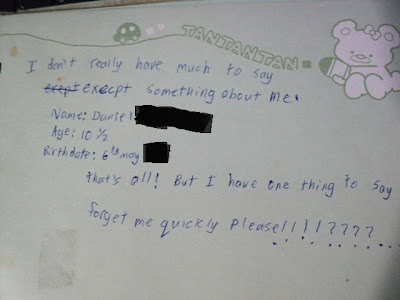 TANTANTAN
I don't really have much to say
erept except something about me.
Name: Daniel
Age: 10 1/2
Birthdate: 6th may
That's all! But I have one thing to say
forget me quickly Please!!!!????
........